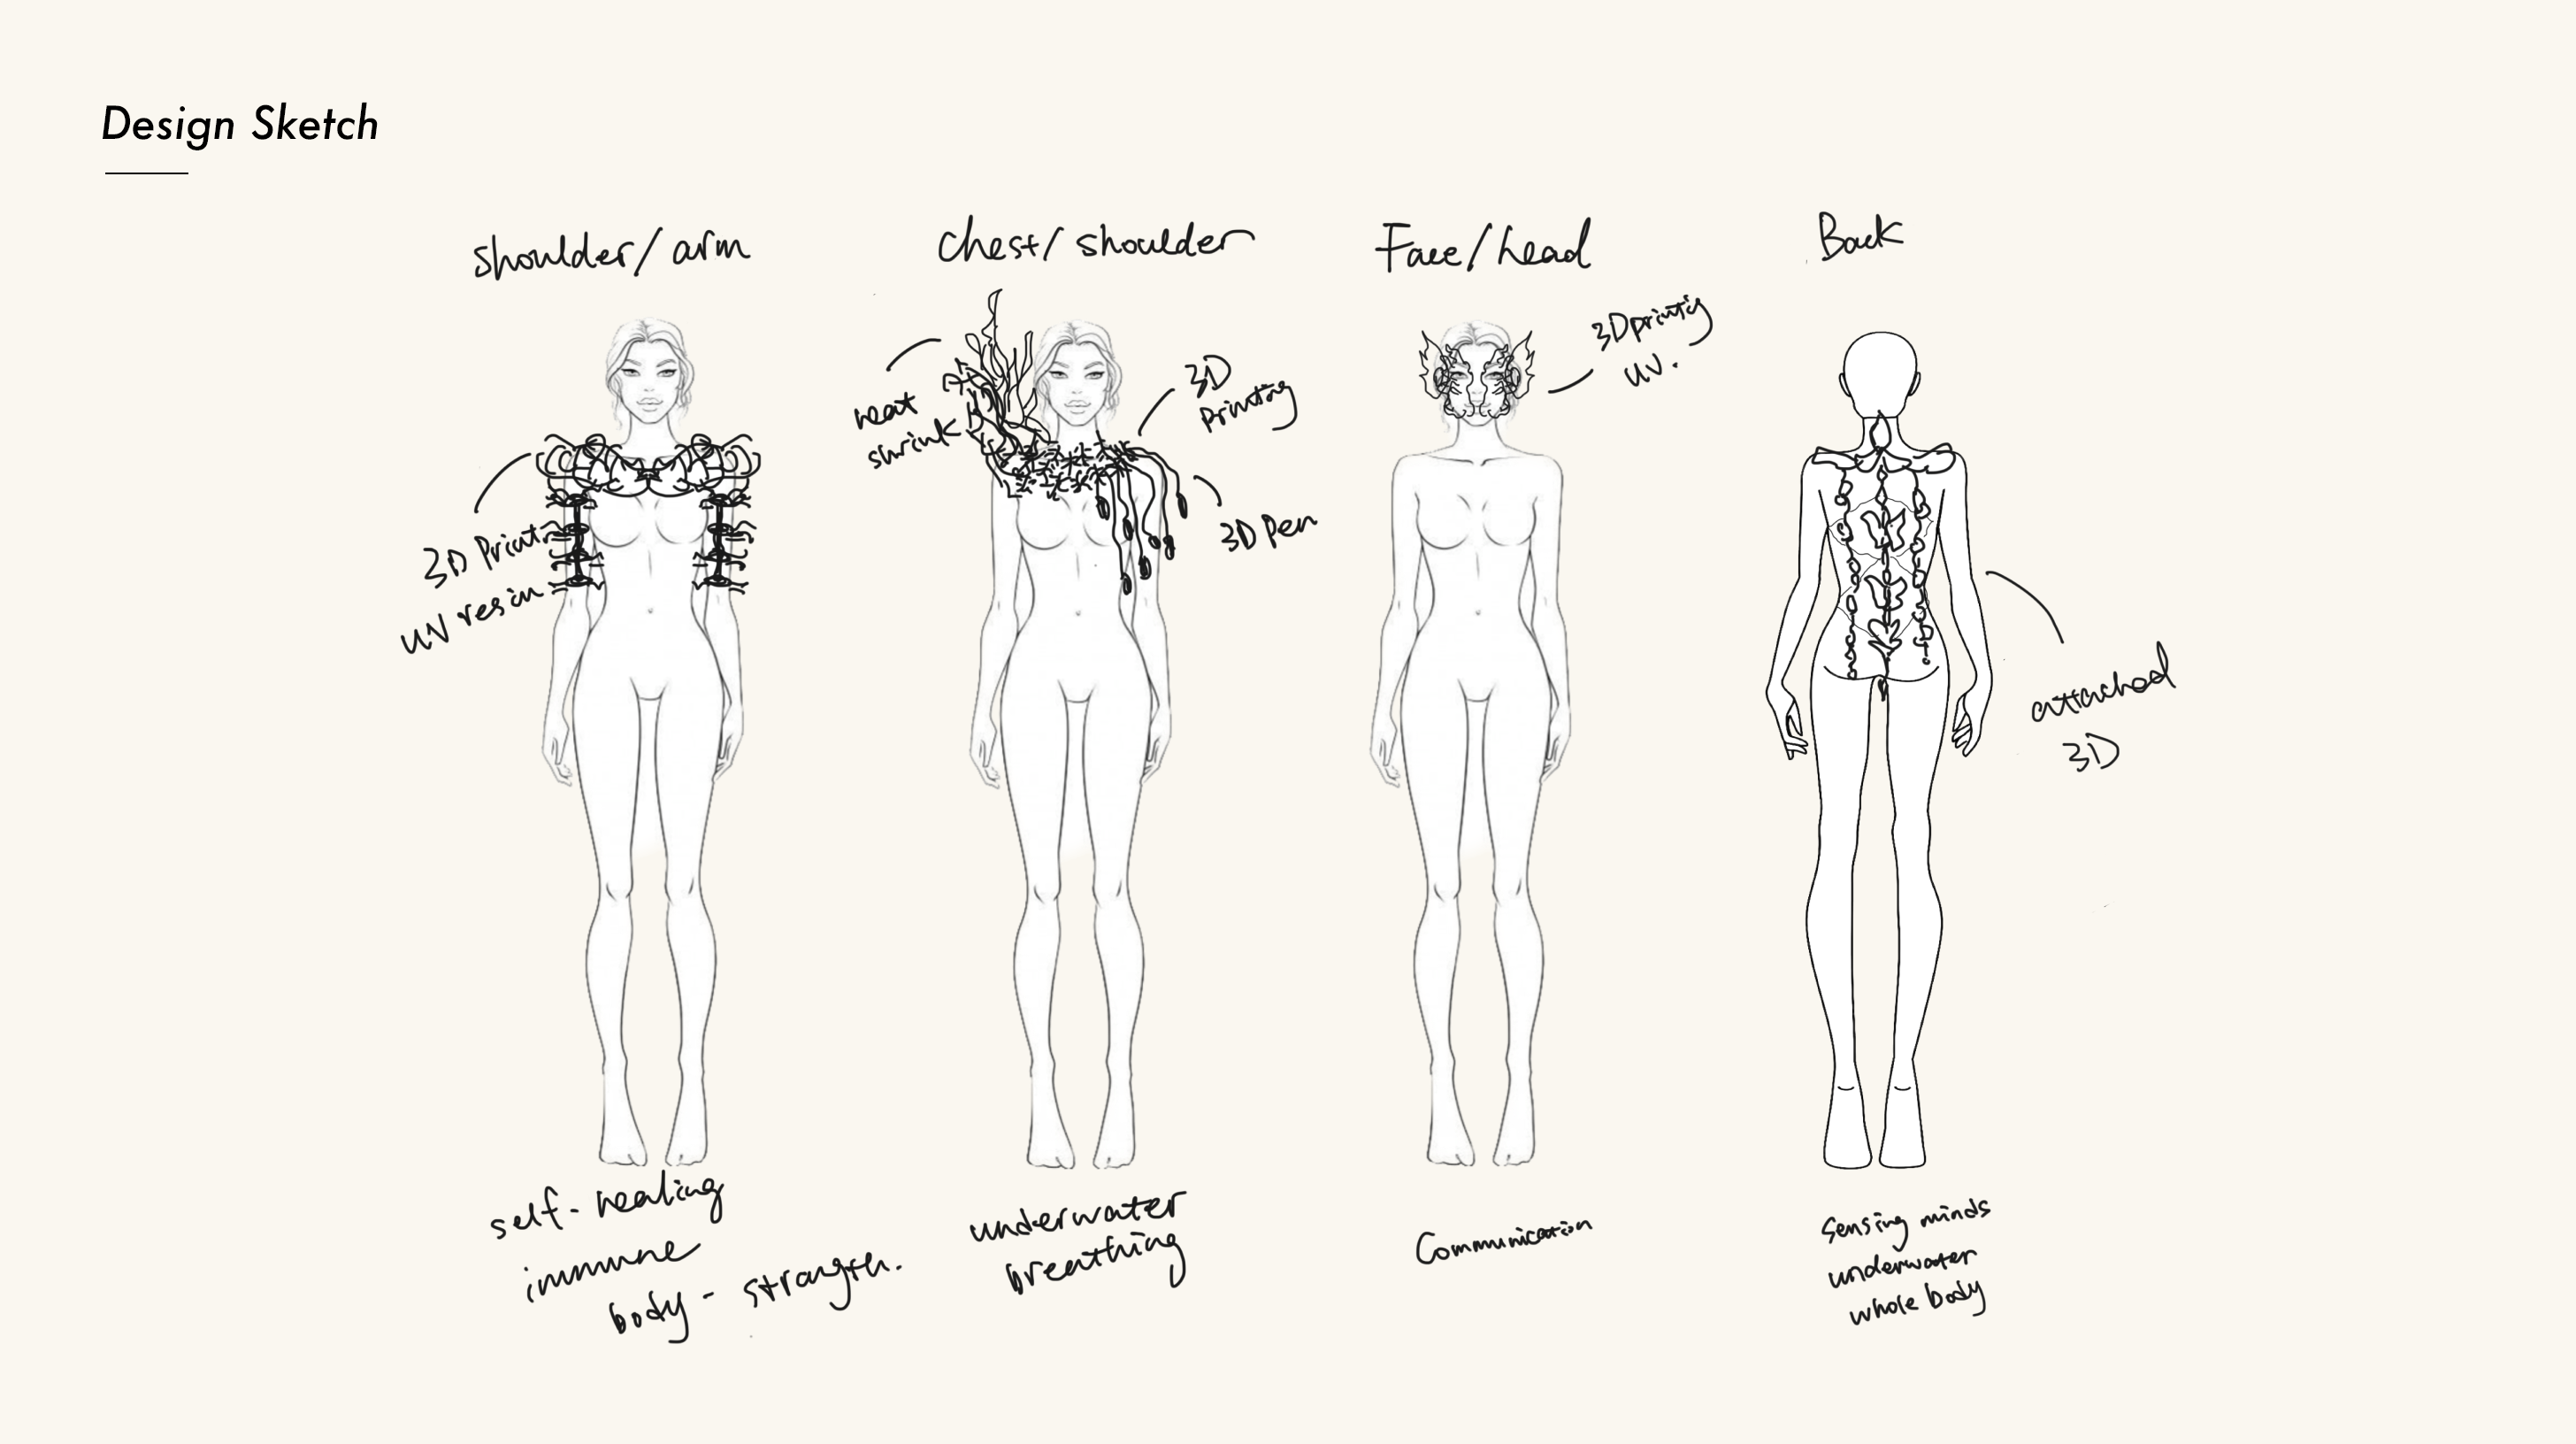 Design Sketch
shoulder/arm
3D Print.
UV resin
self-healing
immune
body-strangth.
Chest/shoulder
heat
shrink
3D
Printing
3D Pen
underwater
breathing
Face/head
3D printig
UV.
Communication
Back
attached
3D
Sensing minds
underwater
whole body